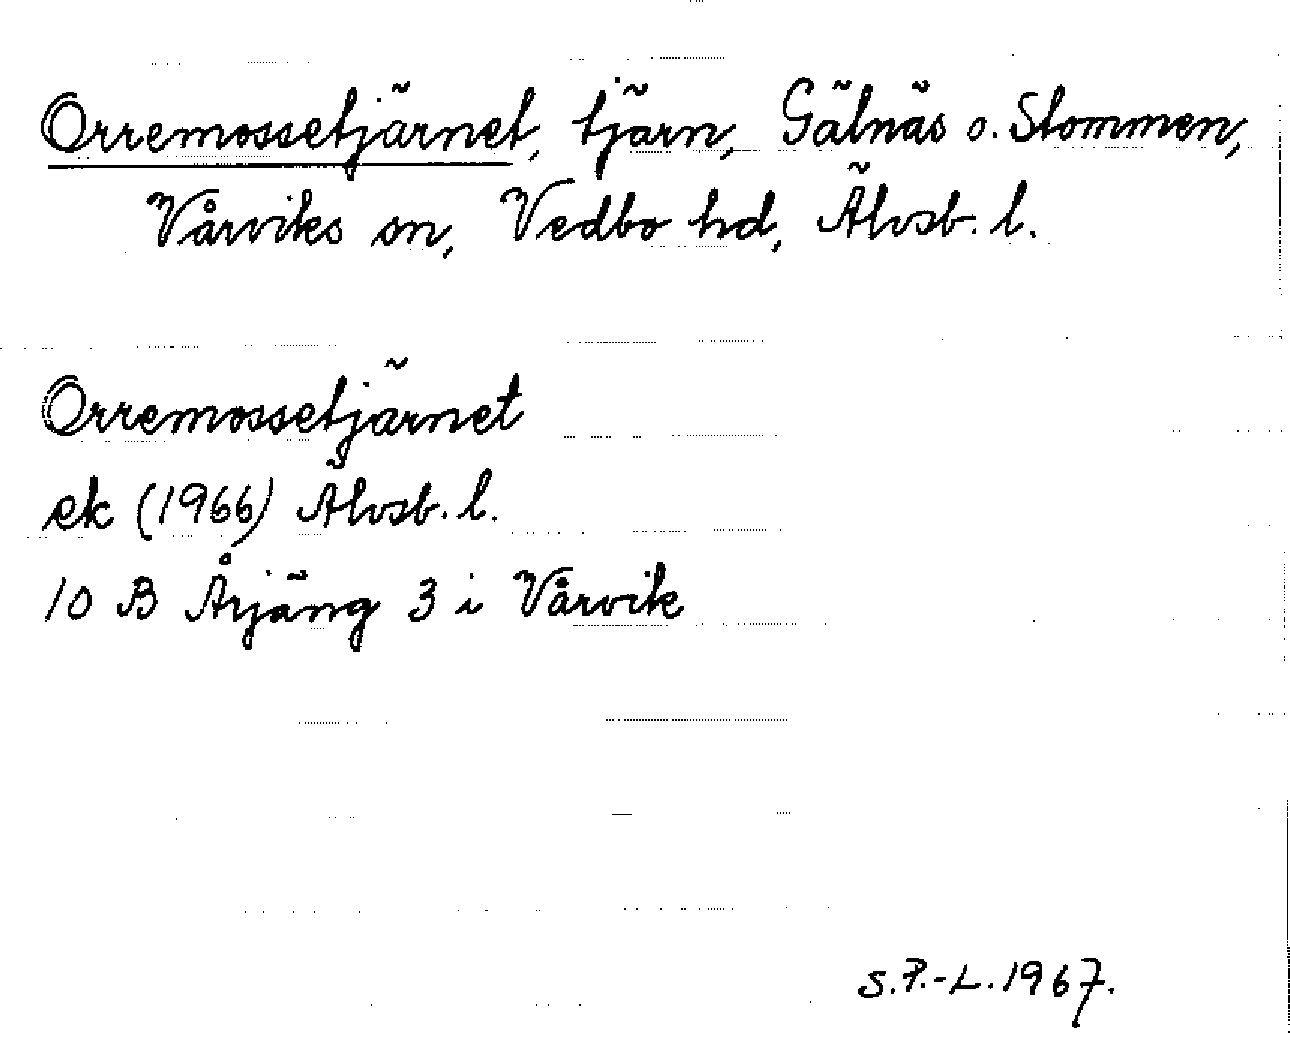 Orremossetjärnet, tjärn, Gälnäs o. Stommen,
Vårviks sn, Vedbo hd, Älvsb. l.
Orremossetjärnet
ek (1966) Älvsb. l.
10 B Årjäng 3 i Vårvik
S.P.-L. 1967.